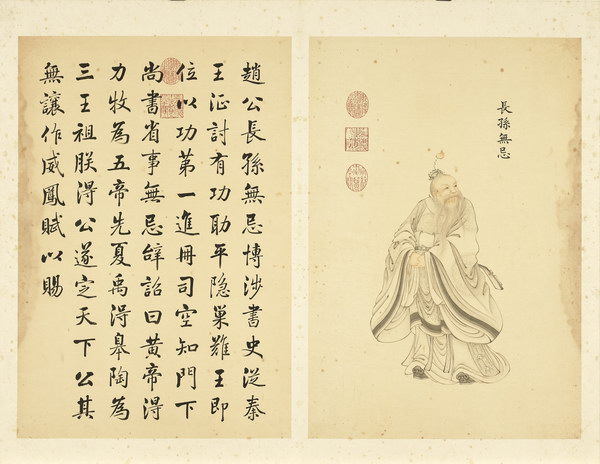 趙公長孫無忌博涉書史從秦
王征討有功助平隐巢難王即
位以功第一進冊司空知門下
尚書省事無忌辞詔曰黄帝得
力牧為五帝先夏禹得皋陶為
三王祖朕得公遂定天下公其
無讓作威鳳賦以賜
長孫無忌